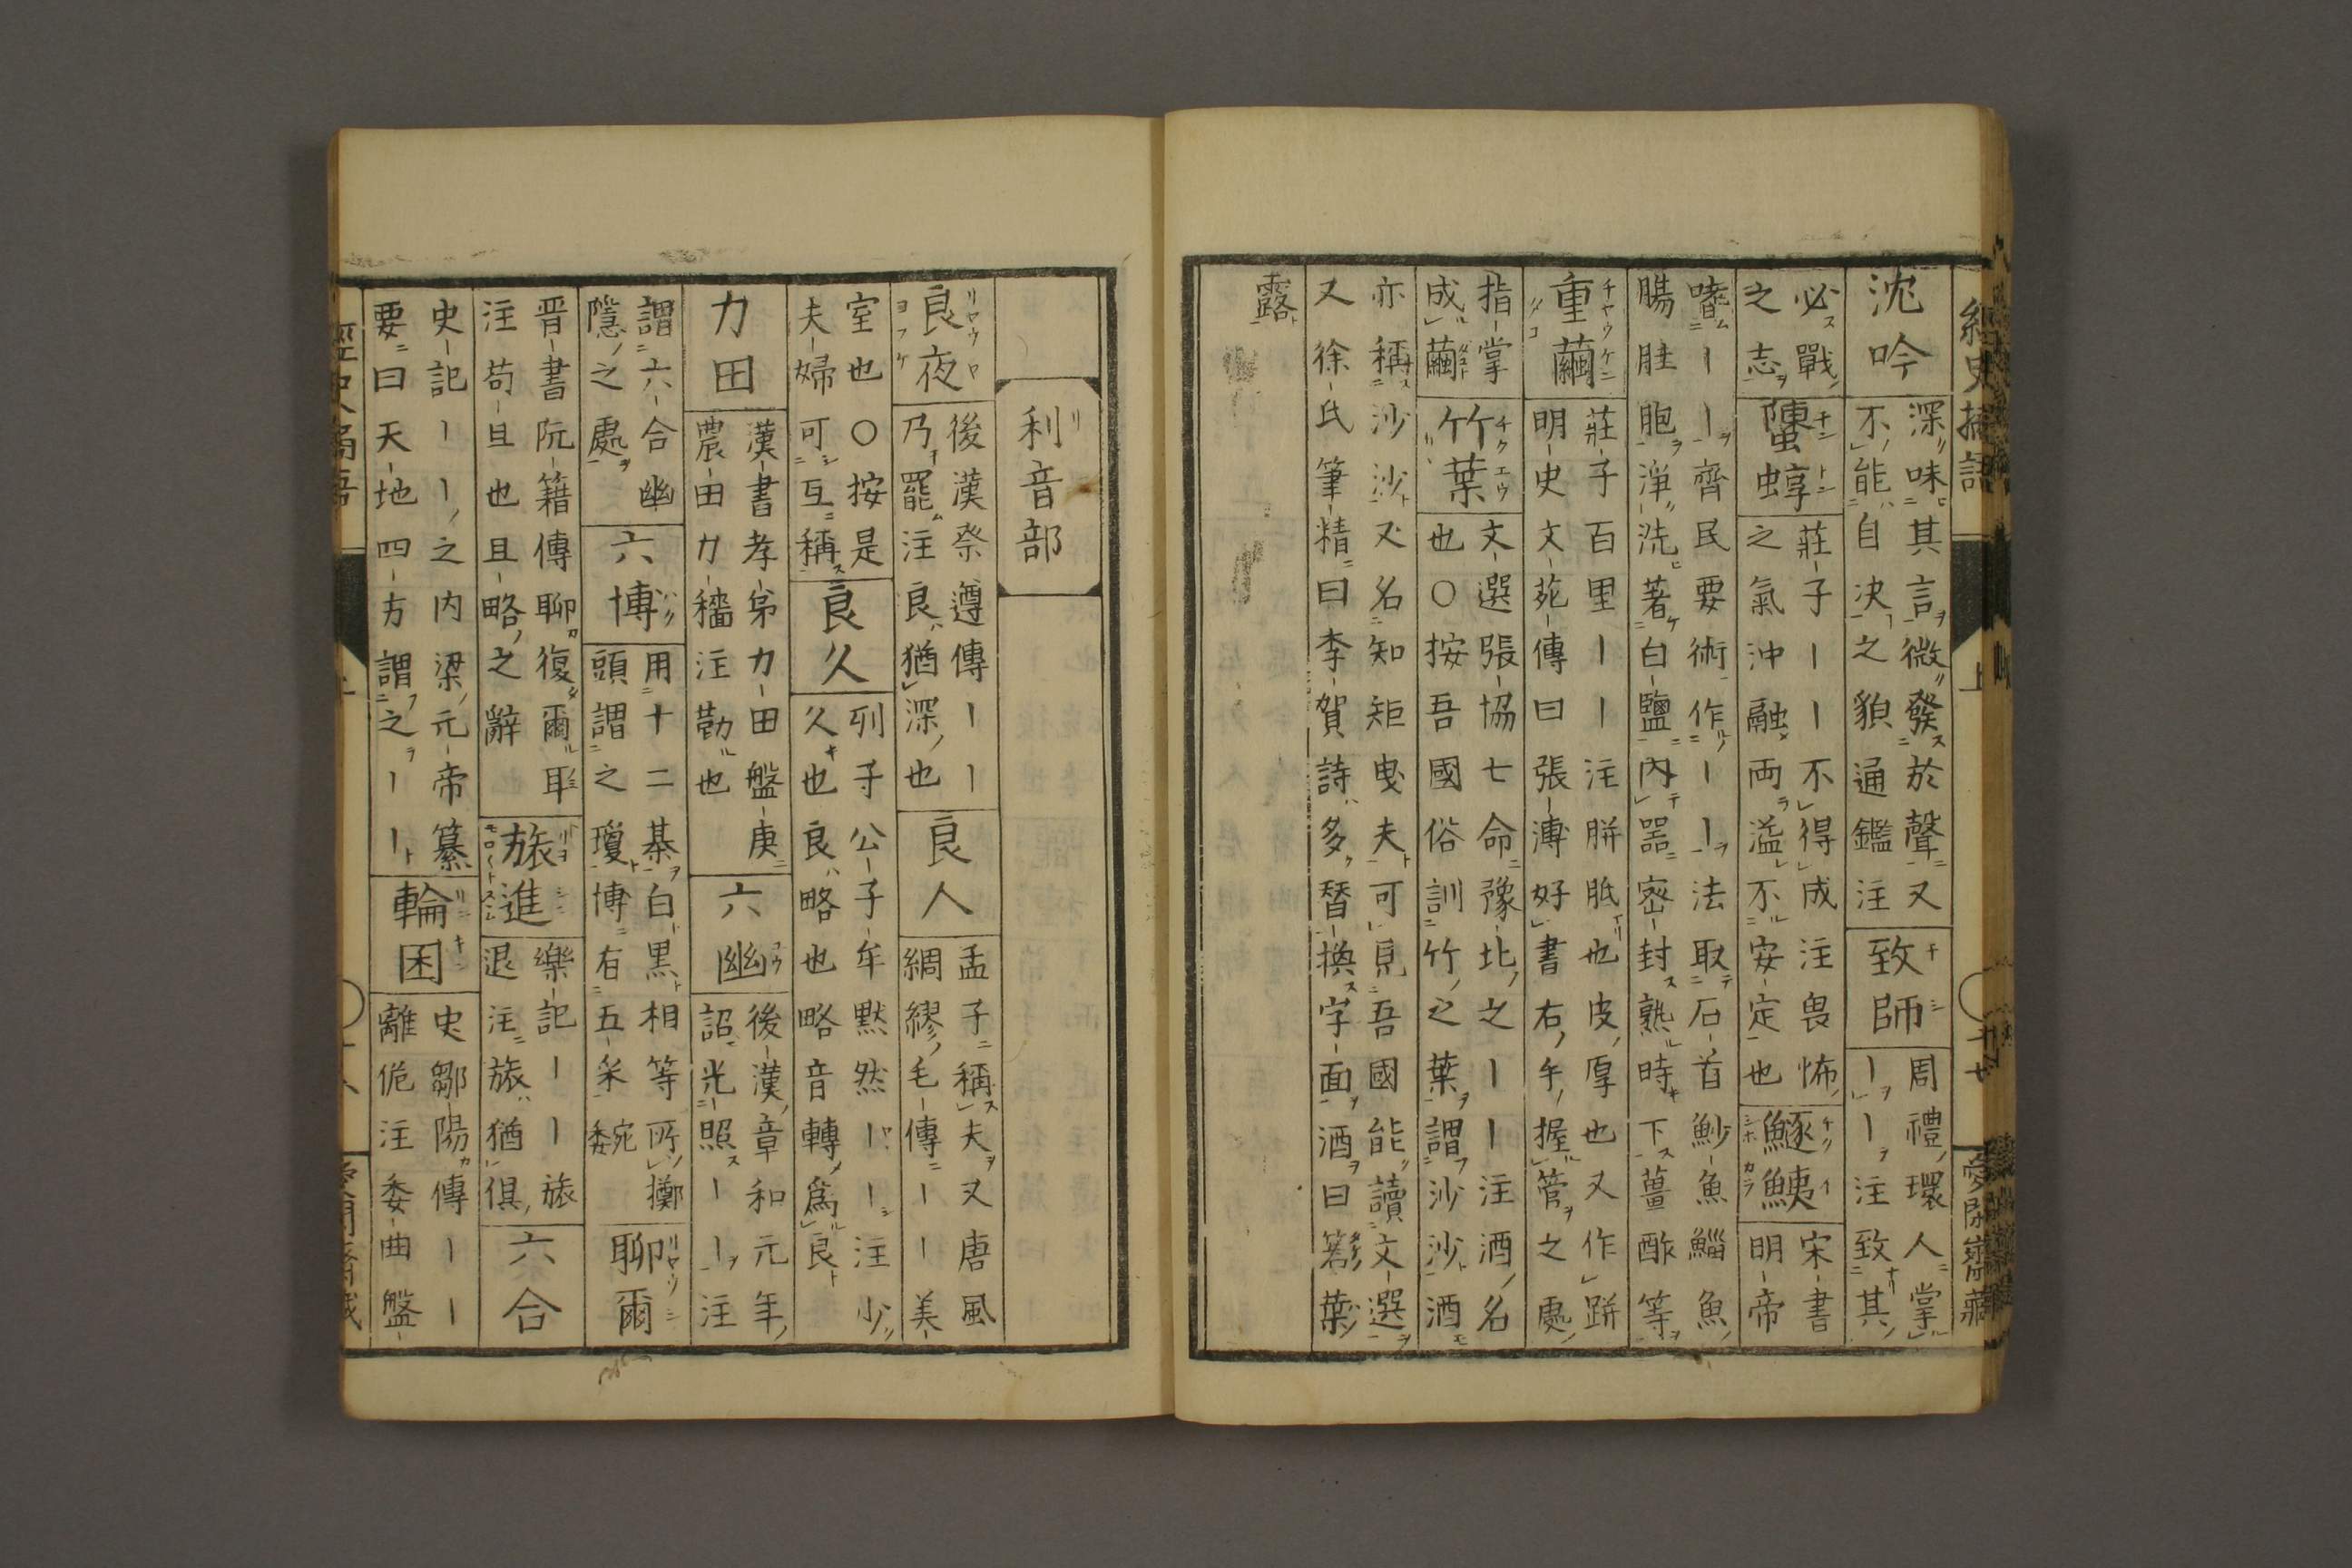 經史摘語 上
沈吟 深味其言微發於聲又
不能自決之貌通鑑注
致師 周禮環人掌
ーー注致其
必戰
之志
螴蜳 莊子ーー不得成注畏怖
之氣沖融兩溢不安定也
鱁鮧 宋書
明帝
嗜ーー齊民要術作ーー法取石首魦魚鯔魚
腸肚胞淨洗著白鹽內器密封熟時下薑酢等
重繭 莊子百里ーー注胼胝也皮厚也又作跰
明史文苑傳曰張溥好書右手握管之處
指掌
成繭
竹葉 文選張協七命豫北之ーー注酒名
也〇按吾國俗訓竹之葉謂沙沙酒
亦稱沙沙又名知矩曳夫可見吾國能讀文選
又徐氏筆精曰李賀詩多替換字面酒曰箬葉
露
利音部
良夜 後漢祭遵傳ーー
乃罷注良猶深也
良人 孟子稱夫又唐風
綢繆毛傳ーー美
室也〇按是
夫婦可互稱
良久 列子公子牟默然ーー注少
久也良略也略音轉爲良
力田 漢書孝弟力田盤庚
農田力穡注勤也
六幽 後漢章和元年
詔光照ーー注
謂六合幽
隱之處
六博 用十二棊白黑相等所擲
頭謂之瓊博有五采
聊爾
晉書阮籍傳聊復爾耳
注苟且也且略之辭
旅進 樂記ーー旅
退注旅猶俱
六合
史記ーー之內梁元帝纂
要曰天地四方謂之ーー
輪囷 史鄒陽傳ーー
離佹注委曲盤